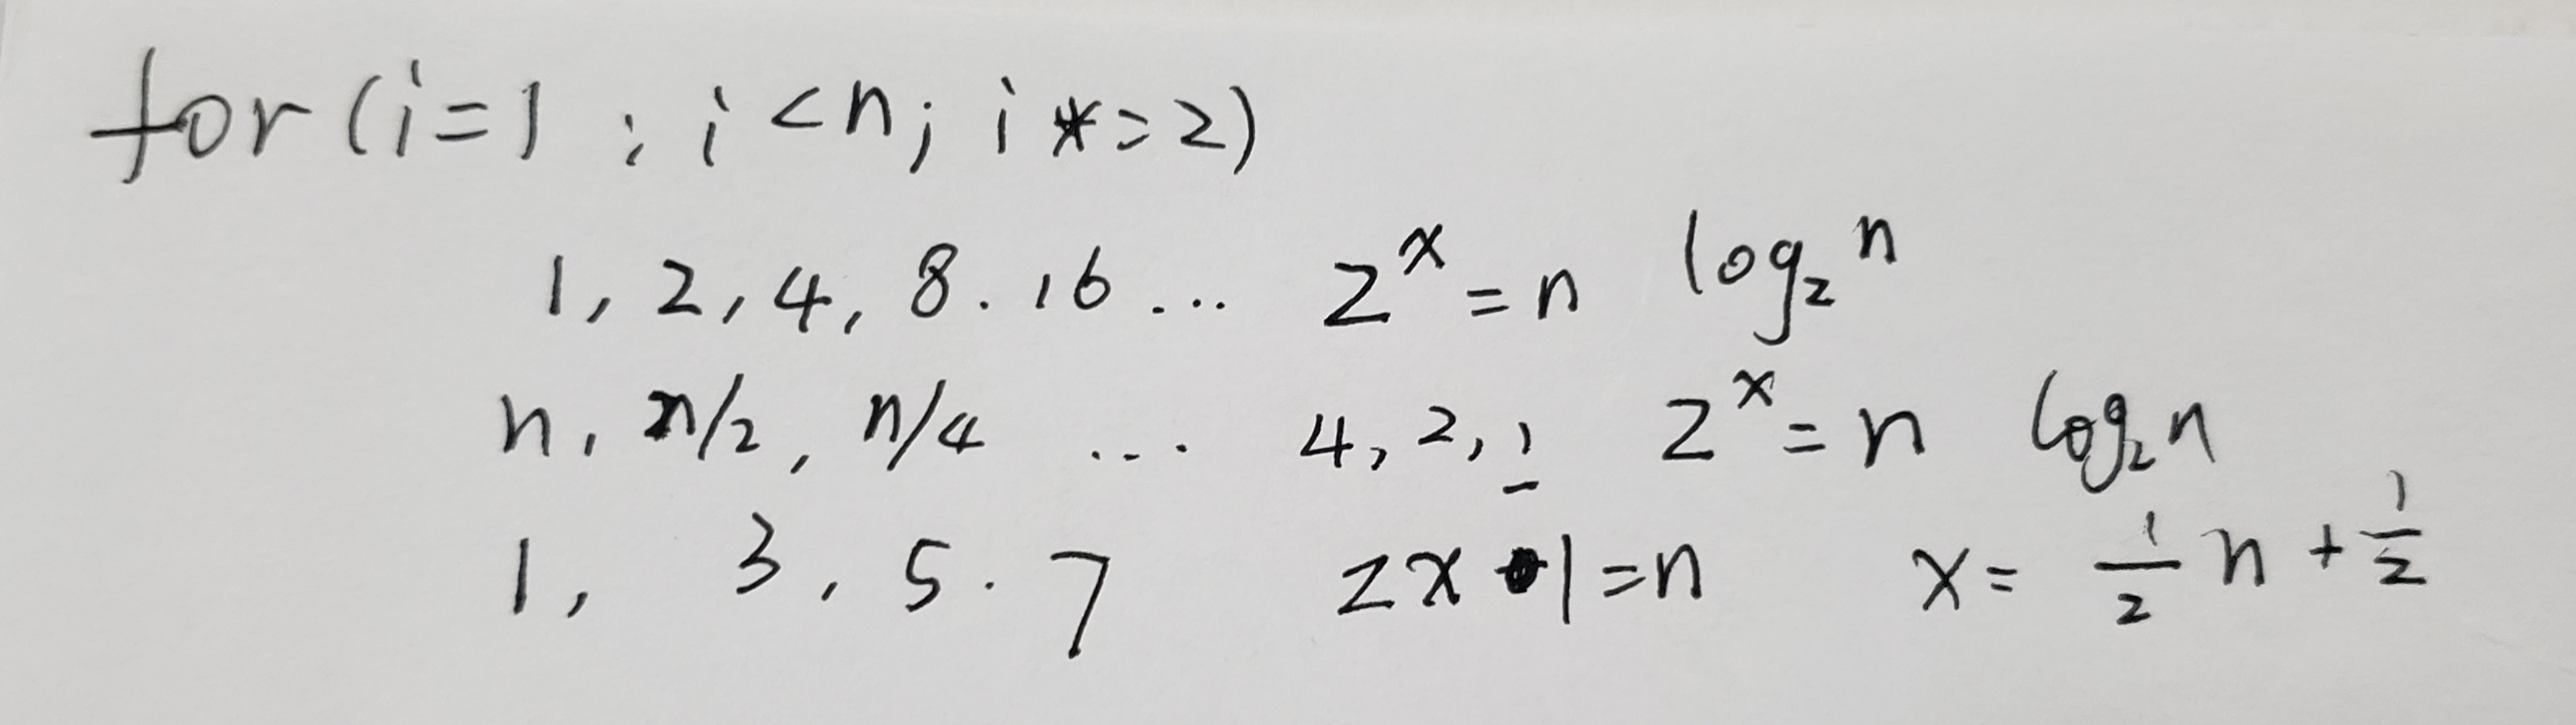 for (i=1 ; i<n; i *=2)
1, 2, 4, 8. 16 ... 2^x = n log₂ n
n, n/2, n/4 ... 4, 2, 1 2^x = n log₂ n
1, 3, 5. 7 2x - 1 = n x = 1/2 n + 1/2